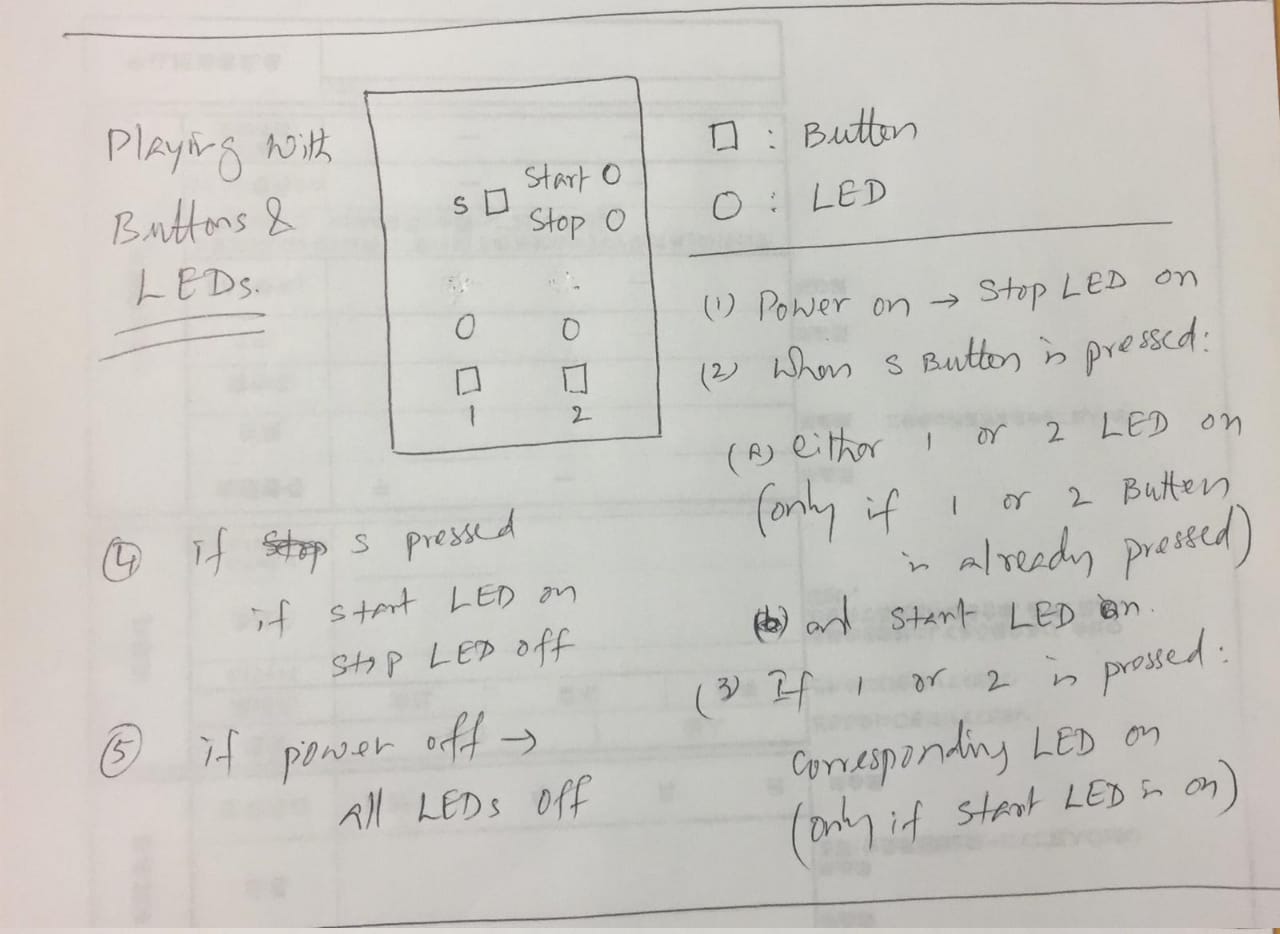 Playing with
Buttons &
LEDs.
S Start
Stop
1 2
: Button
: LED
(1) Power on → Stop LED on
(2) When S Button is pressed:
(A) either 1 or 2 LED on
(only if 1 or 2 Button
is already pressed)
(b) and Start LED on.
(3) If 1 or 2 is pressed:
corresponding LED on
(only if Start LED is on)
④ if Stop S pressed
if start LED on
stop LED off
⑤ if power off →
All LEDs off